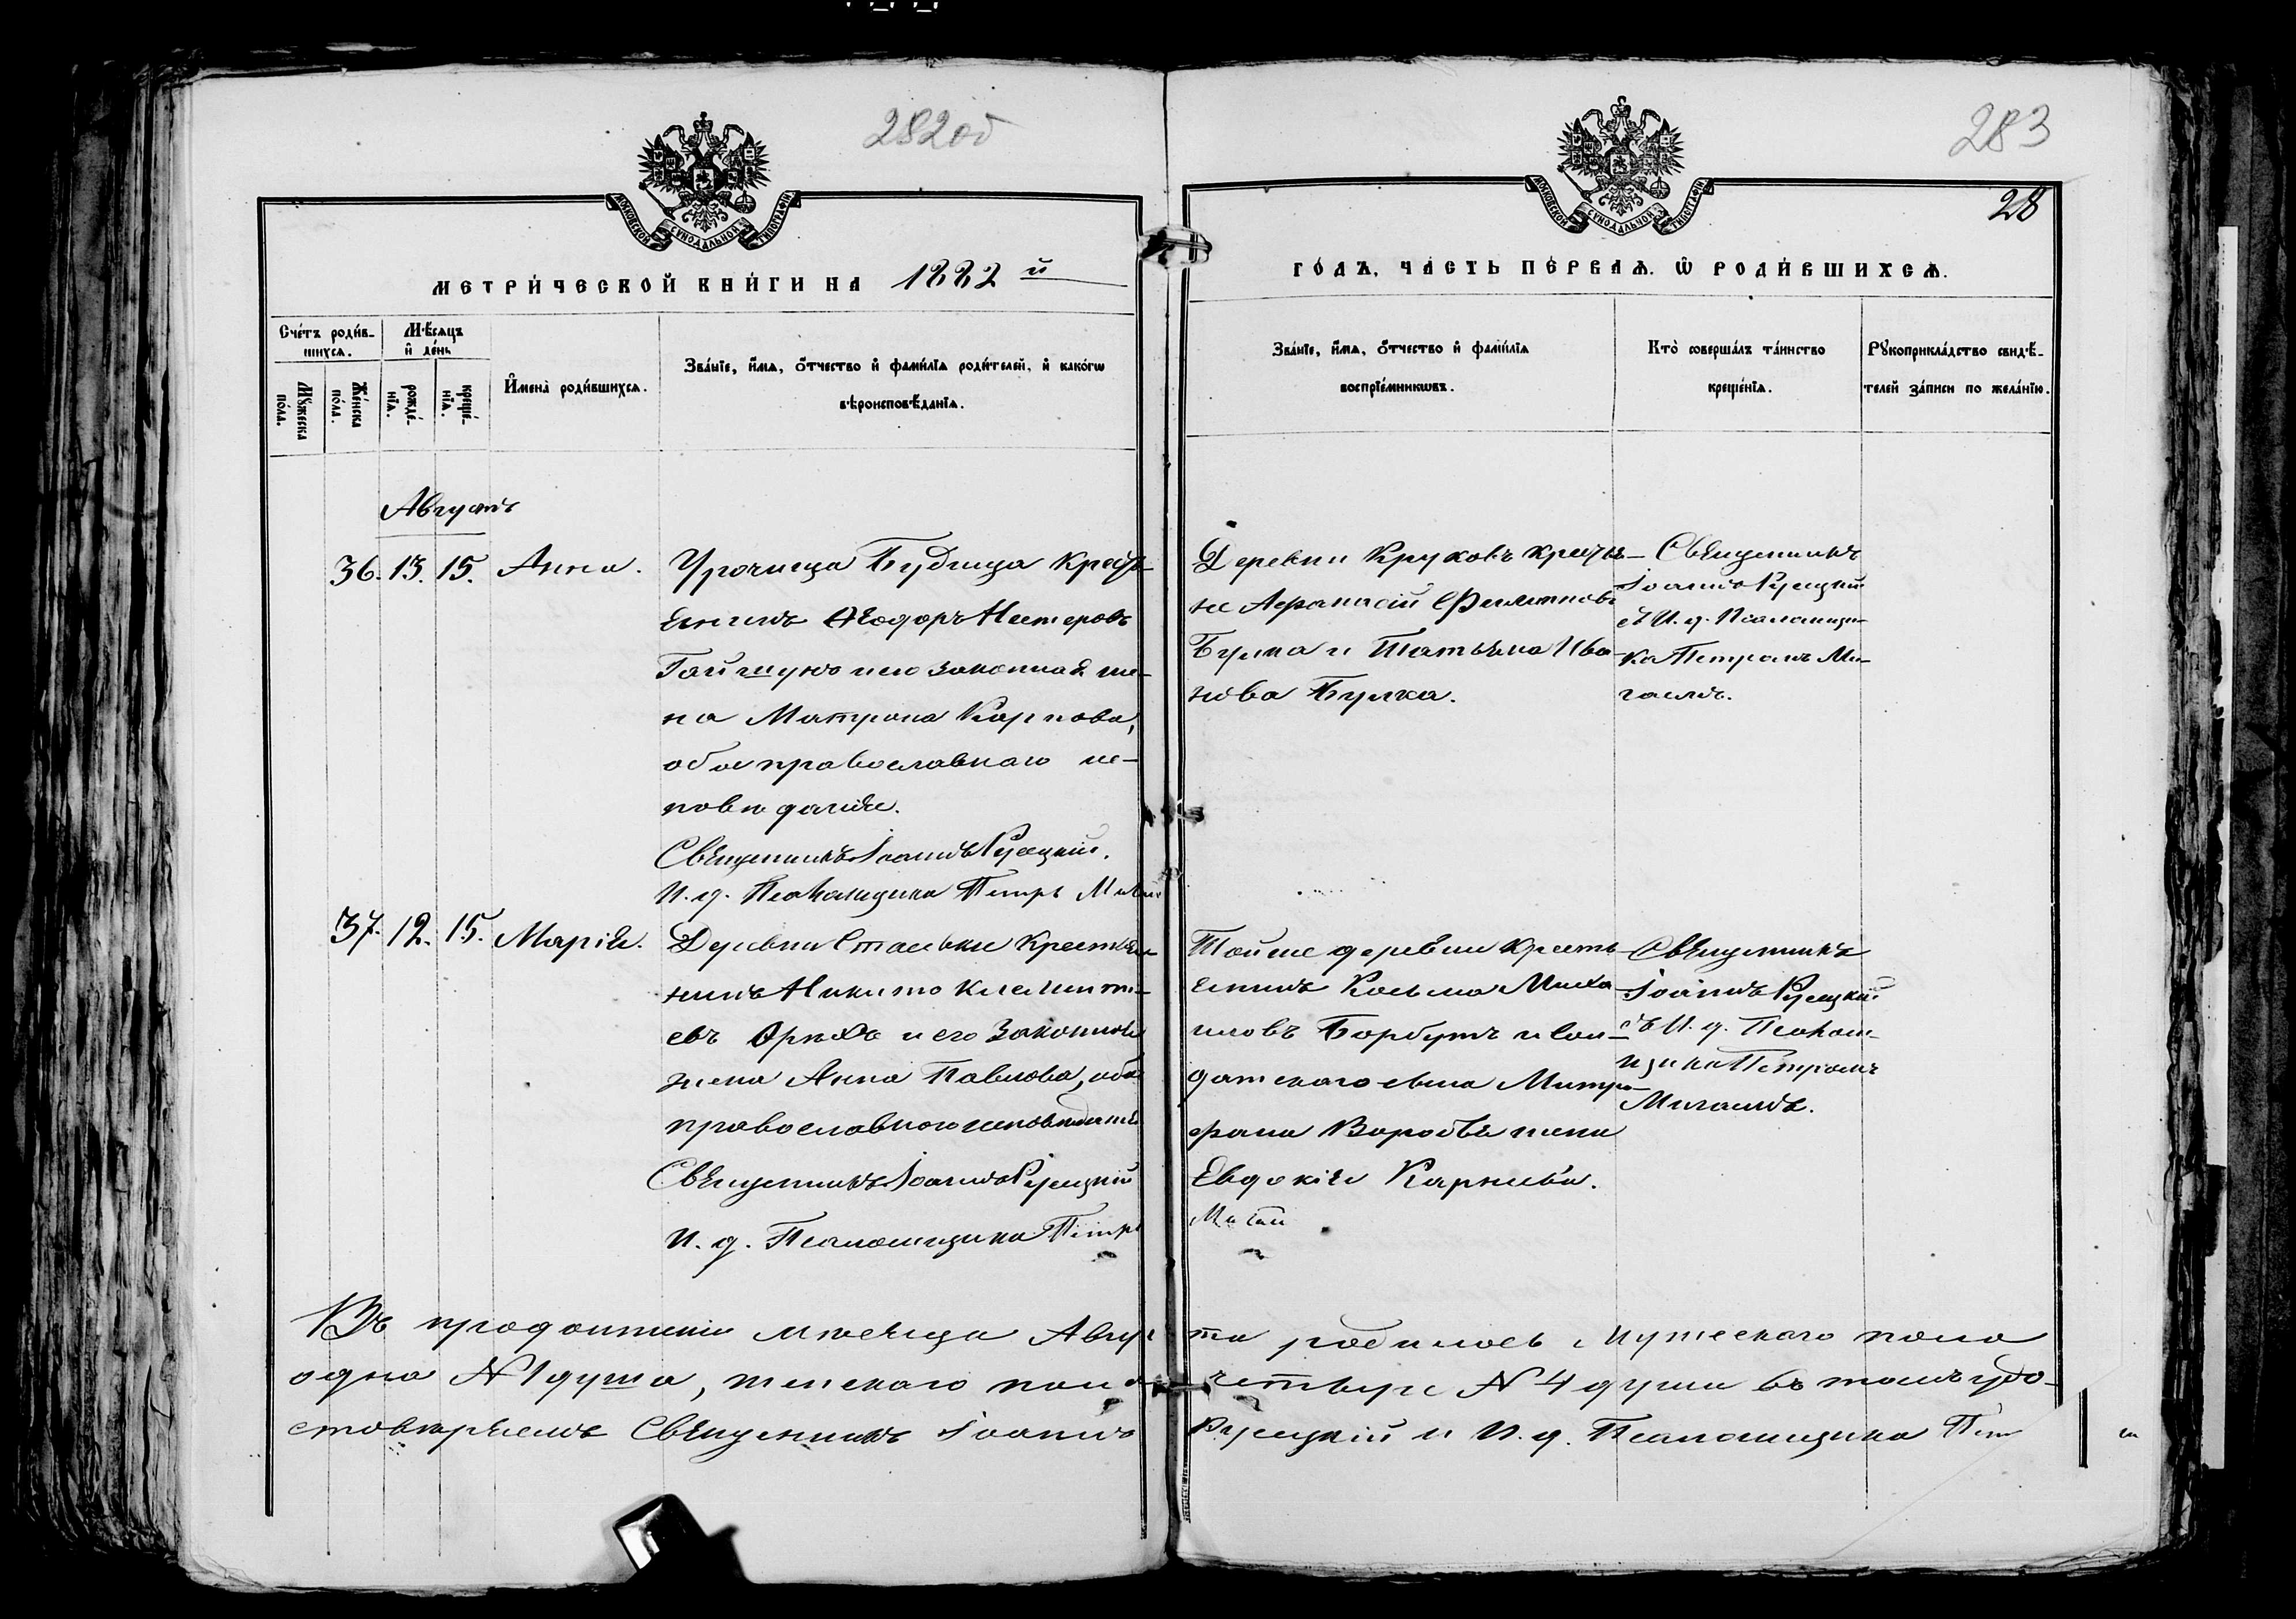 282об
283
28
МОСКОВСКОЙ СУНОДАЛЬНОЙ ТИПОГРАФІИ
МОСКОВСКОЙ СУНОДАЛЬНОЙ ТИПОГРАФІИ
МЕТРИ́ЧЕСКОЙ КНИ́ГИ НА 1882 й
ГО́ДЪ, ЧА́СТЬ ПЕ́РВАѦ. Ѡ҆ РОДИ́ВШИХСѦ.
Сче́тъ роди́в-
шихсѧ.
Мꙋ́жеска по́ла.
Же́нска по́ла.
Мѣ́сѧцъ и҆ де́нь
рожде́-нїѧ.
креще́-нїѧ.
И҆мена̀ роди́вшихсѧ.
Зва́нїе, и҆́мѧ, ѻ҆́тчество и҆ фами́лїѧ роди́телей, и҆ како́гѡ
вѣроисповѣ́данїѧ.
Зва́нїе, и҆́мѧ, ѻ҆́тчество и҆ фами́лїѧ
воспрїе́мникѡвъ.
Кто̀ соверша́лъ та́инство
креще́нїѧ.
Рꙋкоприкла́дство свидѣ́-
телей за́писи по жела́нїю.
Августъ
36. 13. 15. Анна.
Урочища Будища крестья-
нинъ Ѳеодоръ Нестеровъ
и его законная же-
на Матрона Карпова,
обое православнаго ис-
повѣданія.
Священникъ Іоаннъ Русецкій.
И. д. Псаломщика Петръ
Деревни Круковъ крестья-
не Афанасій Филиповъ
Булка и Татьяна Ива-
нова Булка.
Священникъ
Іоаннъ Русецкій
съ И. д. Псаломщи-
ка Петромъ Ми-
гаемъ.
37. 12. 15. Марія.
Деревни крестья-
нинъ Никита Климентi-
евъ и его законная
жена Анна Павлова, обое
православнаго исповѣданія
Священникъ Іоаннъ Русецкій
И. д. Псаломщика Петръ
Той же деревни кресть-
янинъ Косьма Миха-
иловъ Борбутъ и сол-
датскаго сына Митро-
фана жена
Евдокія Карнѣева.
Священникъ
Іоаннъ Русецкій
съ И. д. Псалом-
щика Петромъ
Мигаемъ.
Въ продолженіи мѣсяца Августа родилось мужескаго пола
одна N 1 душа, женскаго пола четыре N 4 души въ томъ удо-
стовѣряемъ Священникъ Іоаннъ Русецкій и И. д. Псаломщика